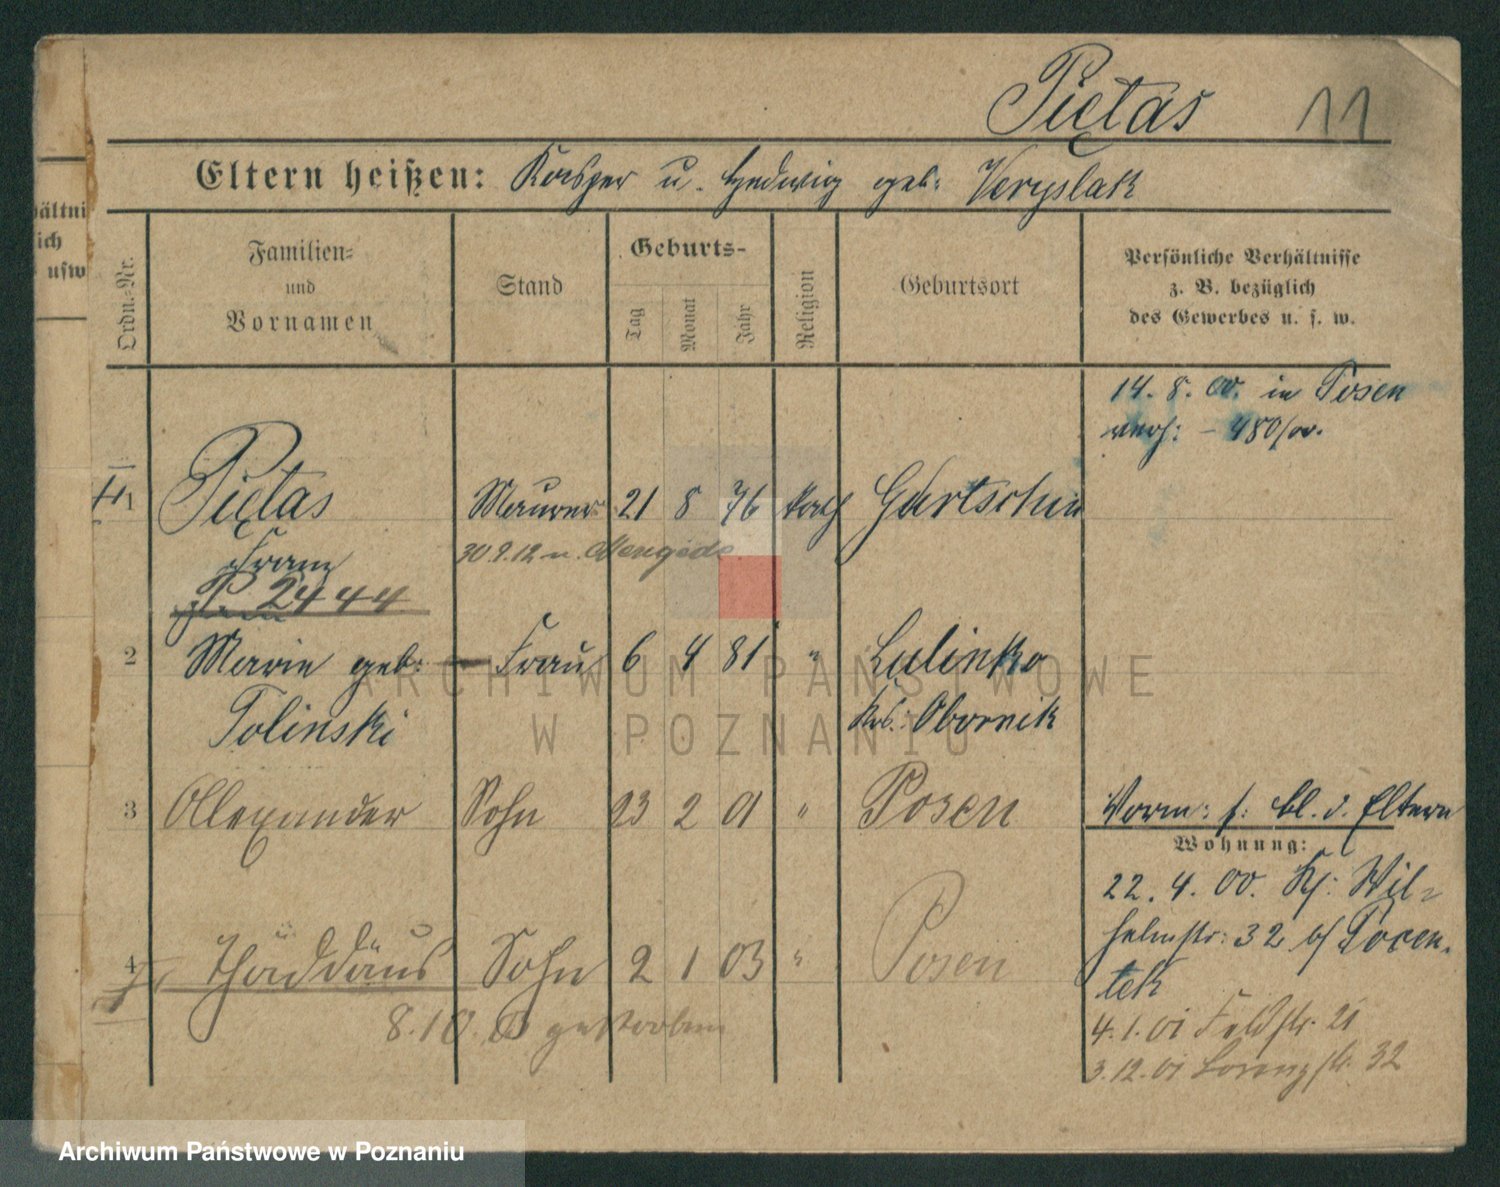 Piętas 11
Eltern heißen: Kasper u. Hedwig geb: Veryslak
Ordn.-Nr.
Familien-
und
Vornamen
Stand
Geburts-
Tag
Monat
Jahr
Religion
Geburtsort
Persönliche Verhältnisse
z. B. bezüglich
des Gewerbes u. s. w.
14. 8. 00. in Posen
verh: - 480/00.
1 Piętas Maurer 21 8 76 kath Gurtschin
Franz 30.9.12 n. Mengede
P 2444
2 Marie geb: Frau 6 4 81 " Lulinko
Tolinski Krs: Obornik
3 Allexander Sohn 23 2 01 " Posen
Vorm: f: bl. d. Eltern
Wohnung:
22. 4. 00. Kl: Wil-
helmstr: 32 b/ Pocen-
tek
4 Thäddäus Sohn 2 1 03 " Posen
8.10. gestorben
4.1.01 Feldstr. 21
3.12.01 Lorenzstr. 32
ältni
ich
usw
ARCHIWUM PAŃSTWOWE
W POZNANIU
Archiwum Państwowe w Poznaniu